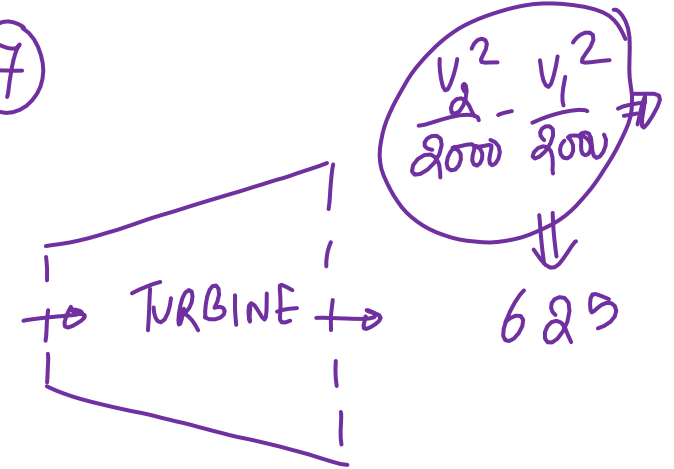 7
V₂²/2000 - V₁²/2000 ⇒
⇓
TURBINE
625